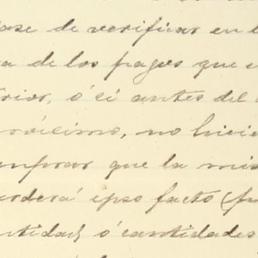 ase de verificar en l
a de los pagos que e
rior, ó si antes del
róximo, no hicie
mprar que la mis
erderá ipso facto (fu
ntidad, ó cantidades